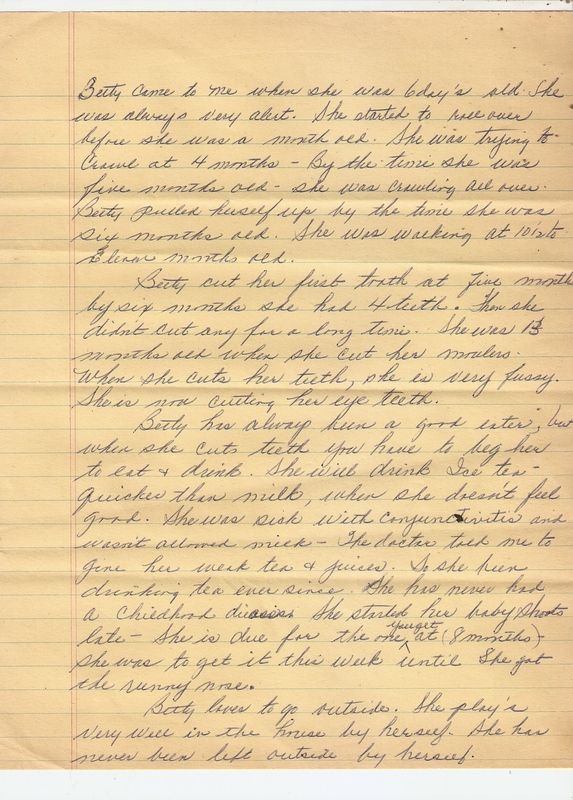 Betty came to me when she was 6 day's old. She
was always very alert. She started to roll over
before she was a month old. She was trying to
crawl at 4 months - By the time she was
five months old - she was crawling all over.
Betty pulled herself up by the time she was
six months old. She was walking at 10½ to
Eleven months old.
Betty cut her first tooth at five month
by six months she had 4 teeth. Then she
didnt cut any for a long time. She was 13
months old when she cut her moulers.
When she cuts her teeth, she is very fussy.
She is now cutting her eye teeth.
Betty has always been a good eater, but
when she cuts teeth you have to beg her
to eat & drink. She will drink Ice tea -
quicker than milk, when she doesn't feel
good. She was sick with conjunctivitis and
wasn't allowed milk - The doctor told me to
give her weak tea & juices. So she been
drinking tea ever since. She has never had
a childhood She started her baby shots
late - She is due for the one youget at (8 months) -
she was to get it this week until She got
the runny nose.
Betty loves to go outside. She play's
very well in the house by herself. She has
never been left outside by herself.